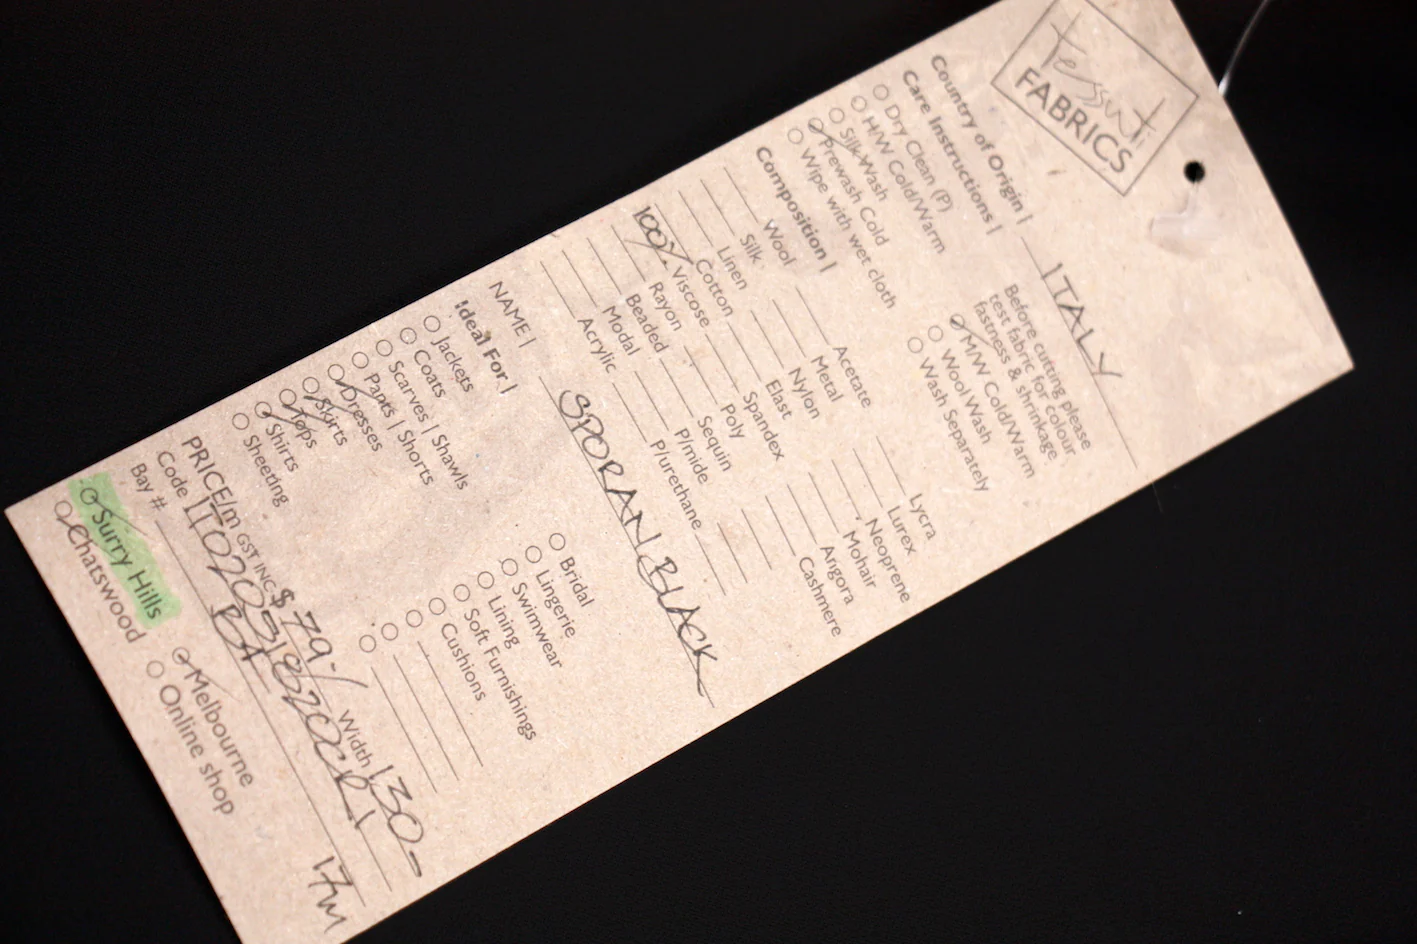 tessuti
FABRICS
Country of Origin | ITALY
Care Instructions |
Before cutting please
test fabric for colour
fastness & shrinkage
Dry Clean (P)
H/W Cold/Warm
Silk Wash
Prewash Cold
Wipe with wet cloth
M/W Cold/Warm
Wool Wash
Wash Separately
Composition |
Wool
Silk
Linen
Cotton
100% Viscose
Rayon
Beaded
Modal
Acrylic
Acetate
Metal
Nylon
Elast
Spandex
Poly
Sequin
P/mide
P/urethane
Lycra
Lurex
Neoprene
Mohair
Angora
Cashmere
NAME | SPORAN BLACK
Ideal For |
Jackets
Coats
Scarves | Shawls
Pants | Shorts
Dresses
Skirts
Tops
Shirts
Sheeting
Bridal
Lingerie
Swimwear
Lining
Soft Furnishings
Cushions
PRICE/m GST INC $79.- Width 130-
Code
Bay #
17m
Surry Hills
Chatswood
Melbourne
Online shop